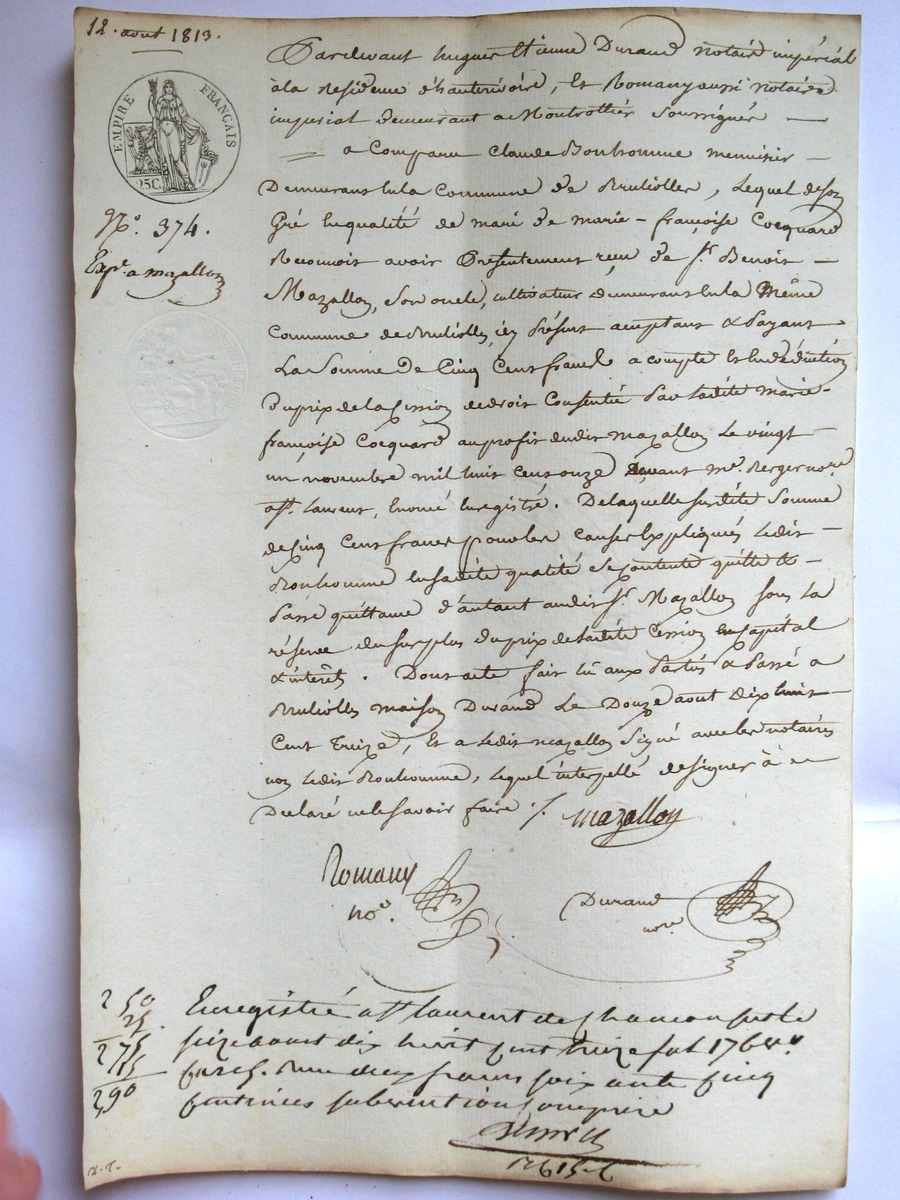 12. aout 1813.
EMPIRE FRANÇAIS
25C.
N°. 374.
Expé. a mazallon
Pardevant hugues Etienne Durand notaire impérial
à la residence d'hauterivoire, Et Romany aussi notaire
imperial demeurant a Montrottier Soussignés —
a Comparu Claude Bonhomme menuisier —
Demeurant En la Commune de Brulliolles, Lequel de son
Gré En qualité de mari de marie – françoise Cocquard
Reconnoit avoir Présentement reçu de Sr. Benoit —
Mazallon, Son oncle, cultivateur demeurant En la Même
Commune de Brulliolles, icy Présent acceptant & Payant
La Somme De Cinq Cent francs a compte Et En déduction
Du prix de la Cession de droit Consentie Par ladite marie-
françoise Cocquard au profit dudit mazallon Le vingt —
un novembre mil huit cent onze devant me. Berger nore.
a St. Laurent, Enoncé Enregistré. De laquelle susdite Somme
de Cinq Cent francs pour les causes Expliqués Ledit —
Bonhomme En sadite qualité Se contente quitte & —
Passe quittance d'autant audit Sr. Mazallon Sous La
réserve du surplus du prix de ladite Cession En Capital
& intérêt. Dont acte fait lû aux Parties & Passé a
Brulliolles maison Durand Le Douze aout dix huit —
Cent Treize, Et a Ledit mazallon Signé avec les notaires
non Ledit Bonhomme, lequel interpellé de signer à —
Declaré ne le savoir faire ./. mazallon
Romany
noe.
Durand
nore.
2 50
25
2 75
15
2,90
Enregistré a St laurent de Chamousset le
seize aout dix huit cent treize fol 176
Reçu deux francs soixante quinze
centimes subvention comprise